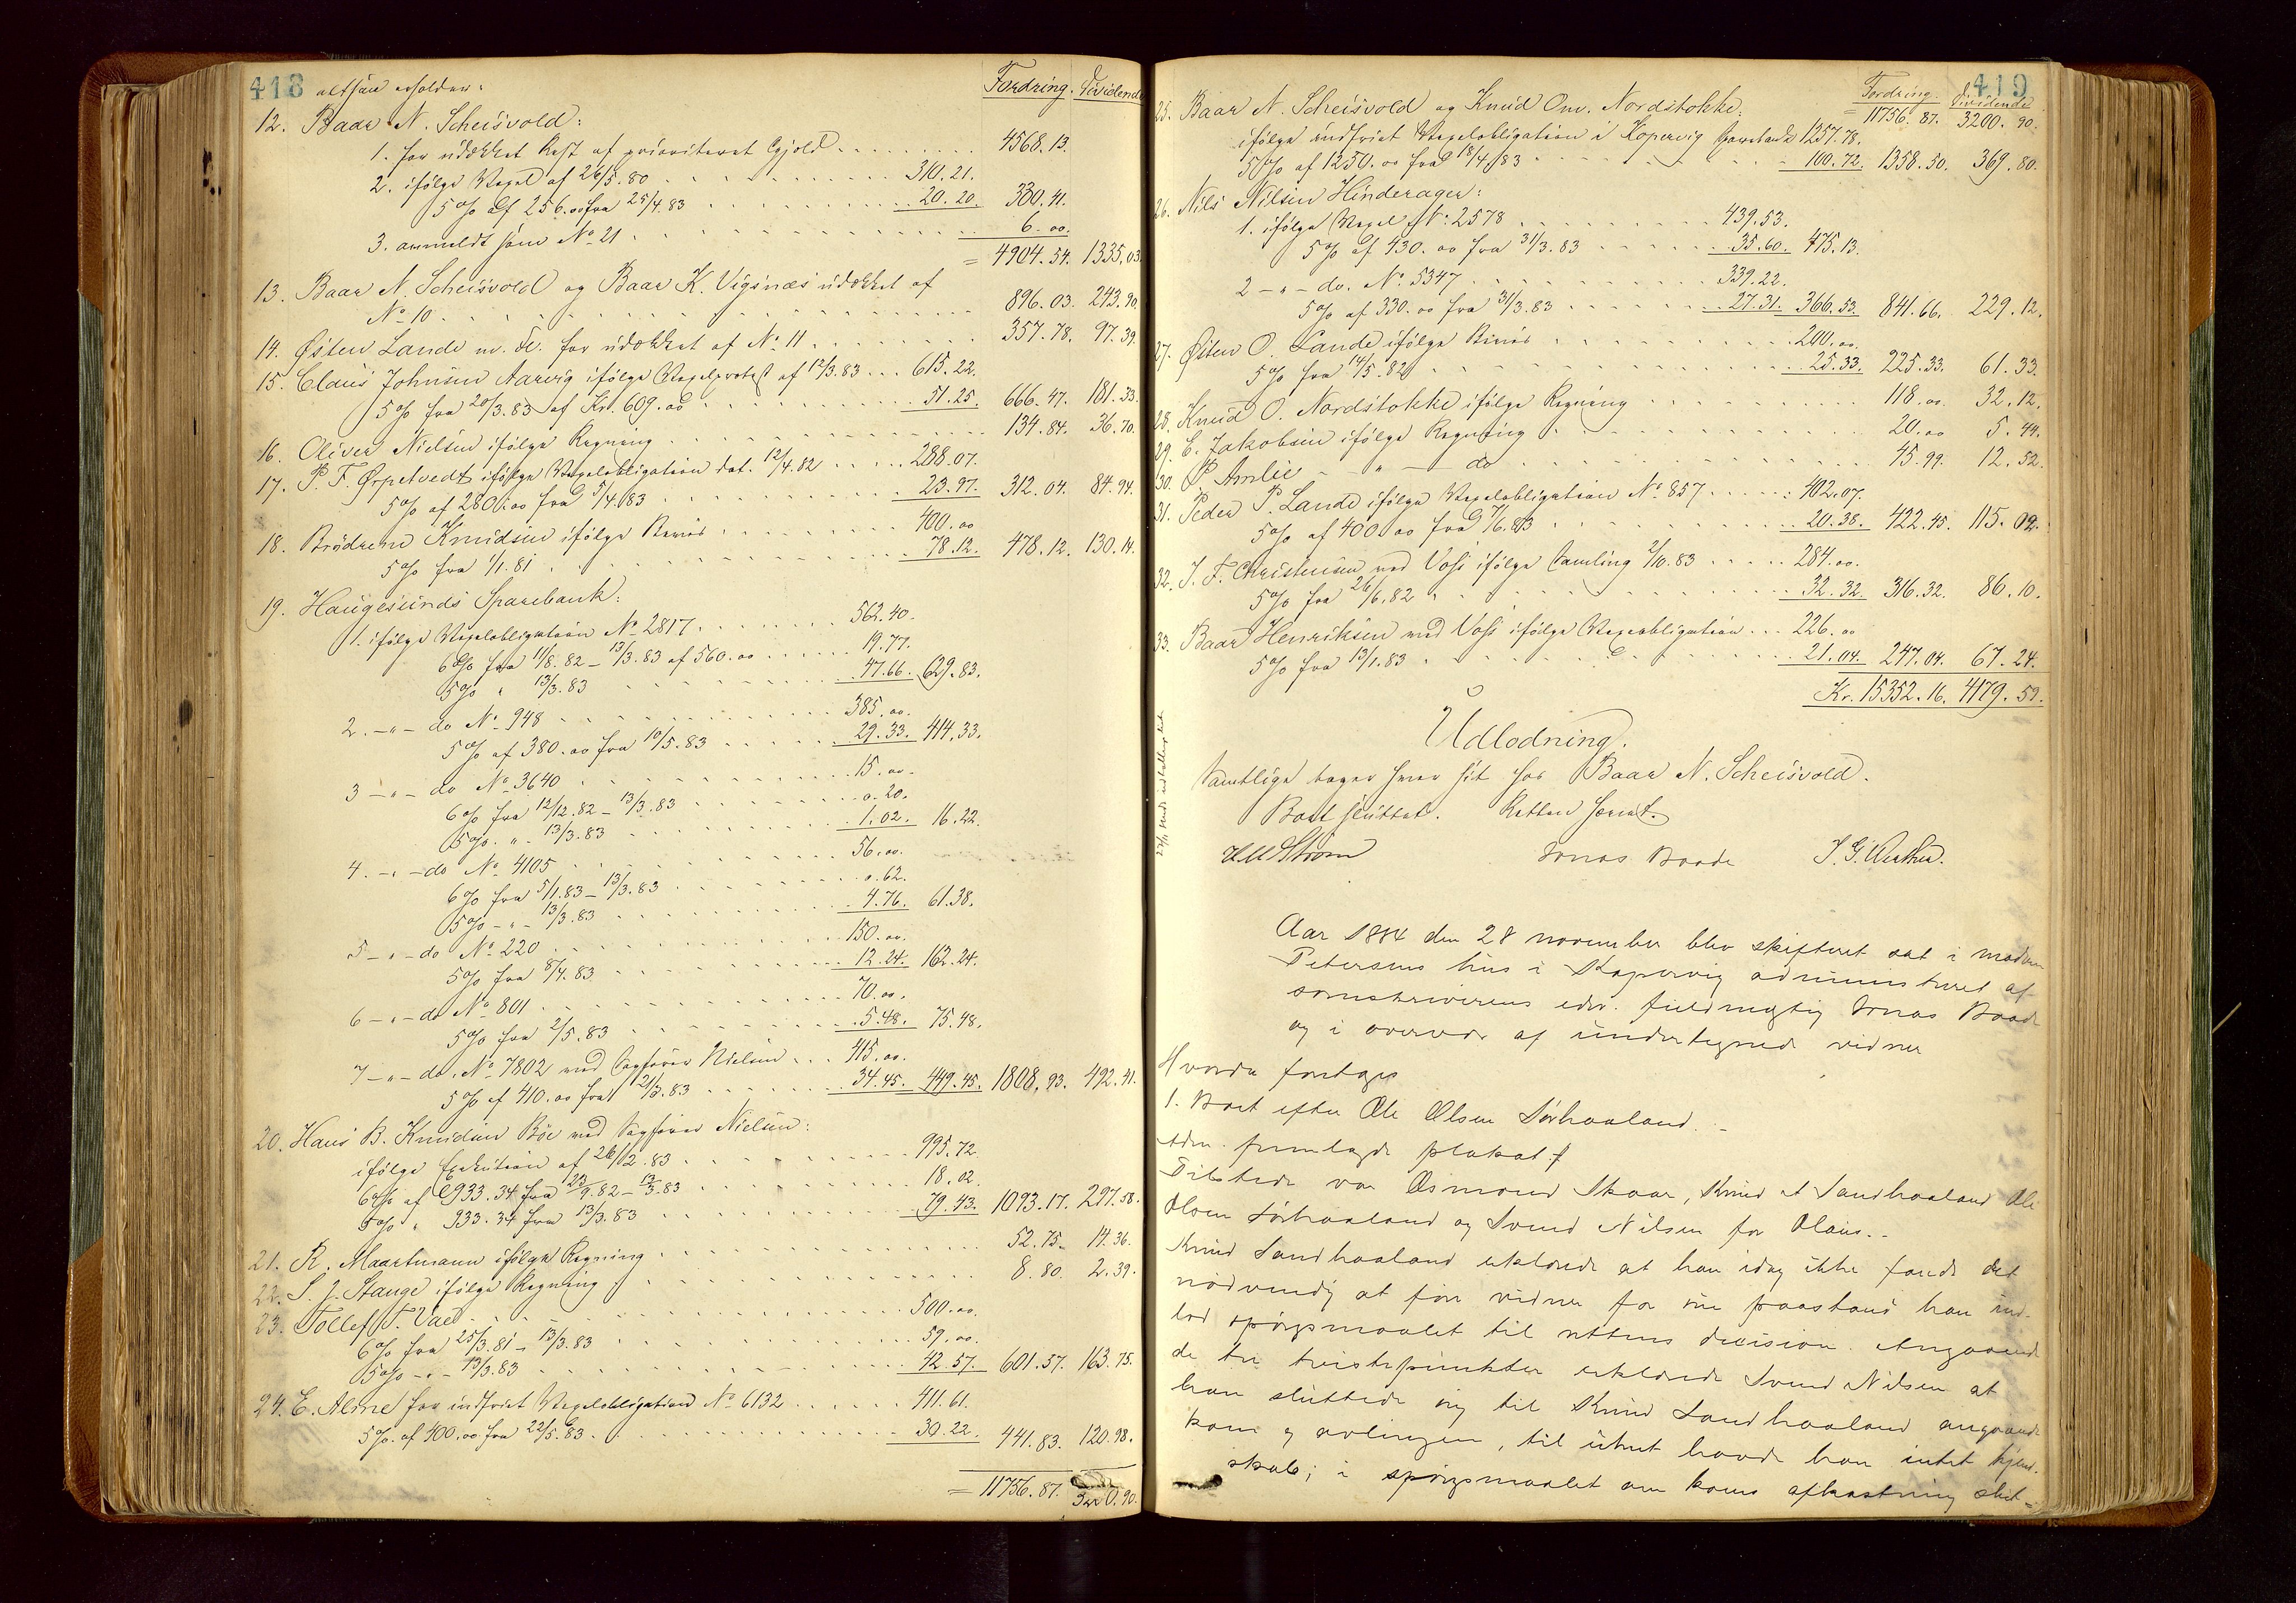 418 altsaa erholder: Fordring. Dividende
12. Baar N. Scheisvold:
1. for udækket Rest af prioriteret Gjæld 4568.13.
2. ifølge Vexel af 26/5.80 310.21.
5% af 256.00 fra 25/4.83 20.20. 330.41.
3. anmeldt som No 21 6.00.
= 4904.54. 1335.03.
13. Baar N. Scheisvold og Baar K. Vigsnæs udækket af
No 10 896.03. 243.90.
14. Østen Lande m. Fl. for udækket af No 11 357.78. 97.39.
15. Claus Johnsen Aarvig ifølge Vexelprotest af 12/3.83 615.22.
5% fra 20/3.83 af Kr. 609.00 51.25. 666.47. 181.33.
16. Oliver Nielsen ifølge Regning 134.84. 36.70.
17. P. F. Ørpetvedt ifølge Vexelobligation dat. 12/4.82 288.07.
5% af 280.00 fra 5/4.83 23.97. 312.04. 84.94.
18. Brødrene Knudsen ifølge Bevis 400.00
5% fra 1/1.81 78.12. 478.12. 130.14.
19. Haugesunds Sparebank:
1. ifølge Vexelobligation No 2817 562.40.
6% fra 11/8.82 – 13/3.83 af 560.00 19.77.
5% " 13/3.83 47.66. 629.83.
2. – " – do No 948 385.00.
5% af 380.00 fra 10/5.83 29.33. 414.33.
3 – " – do No 3640 15.00.
6% fra 12/12.82 – 13/3.83 0.20.
5% – " – 13/3.83 1.02. 16.22.
4. – " – do No 4105 56.00.
6% fra 5/1.83 – 13/3.83 0.62.
5% – " – 13/3.83 4.76. 61.38.
5 – " – do No 220 150.00.
5% fra 8/4.83 12.24. 162.24.
6 – " – do No 801 70.00.
5% fra 2/5.83 5.48. 75.48.
7 – " – do. No 7802 ved Sagfører Nielsen 415.00.
5% af 410.00 fra 21/3.83 34.45. 449.45. 1808.93. 492.41.
20. Hans B. Knudsen Bøe ved Sagfører Nielsen:
ifølge Exekution af 26/12.83 995.72.
6% af 933.34 fra 23/9.82 – 13/3.83 18.02.
5% " 933.34 fra 13/3.83 79.43. 1093.17. 297.58.
21. R. Maartmann ifølge Regning 52.75. 14.36.
22. S. J. Stange ifølge Regning 8.80. 2.39.
23. Tollef T. Vaed 500.00.
6% fra 25/3.81 – 13/3.83 59.00.
5% – " – 13/3.83 42.57. 601.57. 163.75.
24. E. Alsne for indfriet Vexelobligation No 6132 411.61.
5% af 400.00 fra 22/5.83 30.22. 441.83. 120.98.
= 11756.87. 3200.90.
419
Fordring. Dividende
= 11756.87. 3200.90.
25. Baar N. Scheisvold og Knud Om. Nordstokke:
ifølge indfriet Vexelobligation i Kopervig Sparebank 1257.78.
5% af 1250.00 fra 18/4.83 100.72. 1358.50. 369.80.
26. Nils Nilsen Hinderager:
1. ifølge Vexel No. 2578 439.53.
5% af 430.00 fra 31/3.83 35.60. 475.13.
2 – " – do. No. 5347 339.22.
5% af 330.00 fra 31/3.83 27.31. 366.53. 841.66. 229.12.
27. Østen O. Lande ifølge Bevis 200.00.
5% fra 14/5.82 25.33. 225.33. 61.33.
28. Knud O. Nordstokke ifølge Regning 118.00. 32.12.
29. E. Jakobsen ifølge Regning 20.00 5.44.
30. P. Amlie – " – do 45.99. 12.52.
31. Peder P. Lande ifølge Vexelobligation No. 857 402.07.
5% af 400.00 fra 7/6.83 20.38. 422.45. 115.02.
32. J. F. Christensen ved Voss ifølge Samling 2/10.83 284.00.
5% fra 26/6.82 32.32. 316.32. 86.10.
33. Baar Henriksen ved Voss ifølge Vexelobligation 226.00
5% fra 13/1.83 21.04. 247.04. 67.24.
Kr. 15352.16. 4179.59.
Udlodning.
Samtlige tager hver sit hos Baar N. Scheisvold.
Boet sluttet. Retten hævet.
Jonas Baade
Aar 1884 den 28 november blev skifteret sat i madam
Petersens hus i Kopervig administreret af
sorenskriverens edsv. fuldmægtig Jonas Baade
og i overvær af undertegnede vidner
Hvorda foretoges
1. Boet efter Ole Olsen Sørhaaland. –
Adm. fremlagde plakat.
Tilstede var Osmond Skaar, Knud A Sandhaaland Ole
Olsen Sørhaaland og Svend Nilsen for Olaus. –
Knud Sandhaaland erklærede at han idag ikke fandt det
nødvendig at føre vidner for sine paastand han ind-
lod spørgsmaalet til rettens decision. Angaaende
de tre tvistepunkter erklærede Svend Nilsen at
han sluttede sig til Knud Sandhaaland angaaende
korn og avlingen, til uhret havde han intet kjend-
skab; i spørgsmaalet om korns afkastning slut=